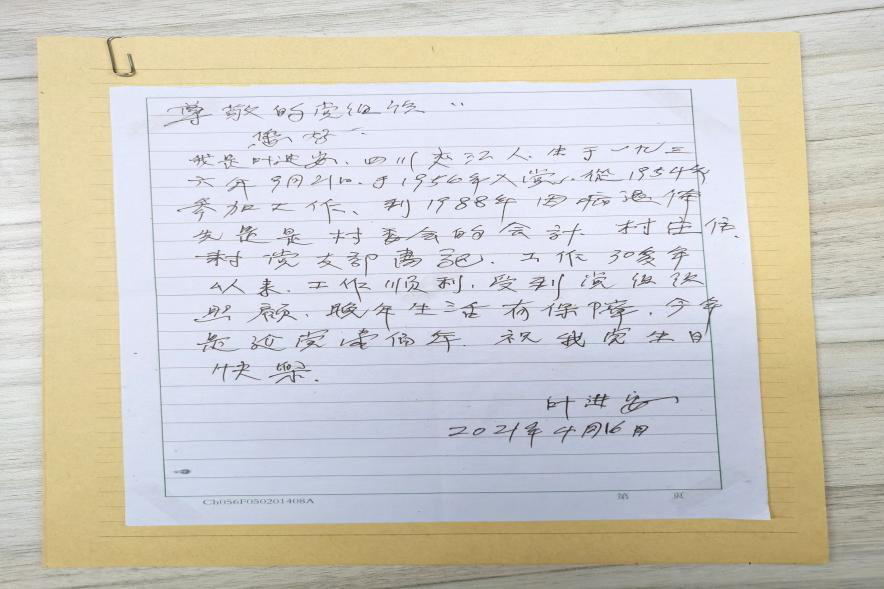 尊敬的党组织：
您好
我是叶进安、四川夹江人、生于一九三
六年9月21日、于1956年入党、從1954年
参加工作、到1988年因病退休
先是是村委会的会計 村主任、
村党支部書記、工作30多年
以来、工作順利、受到党组织
照顾、晚年生活有保障、今年
是建党壹佰年、祝我党生日
快樂.
叶进安
2021年4月16日
Ch056F050201408A
第 頁